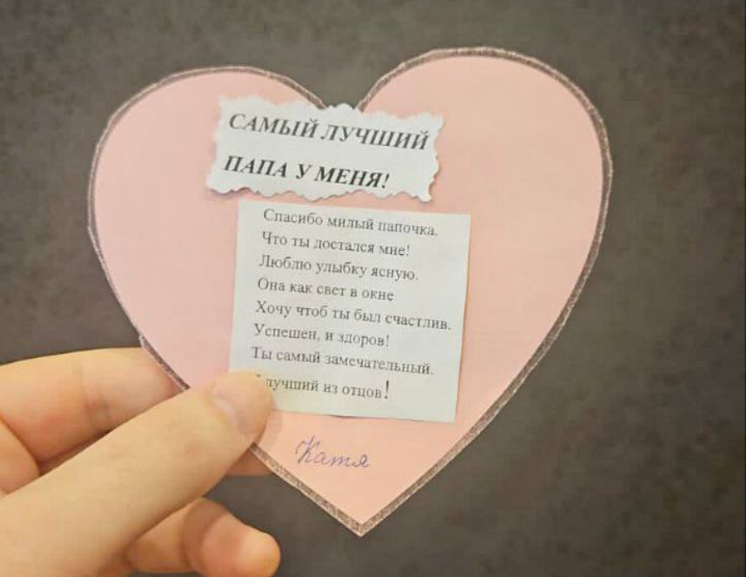 САМЫЙ ЛУЧШИЙ
ПАПА У МЕНЯ!
Спасибо милый папочка.
Что ты достался мне!
Люблю улыбку ясную.
Она как свет в окне
Хочу чтоб ты был счастлив.
Успешен, и здоров!
Ты самый замечательный.
лучший из отцов!
Катя